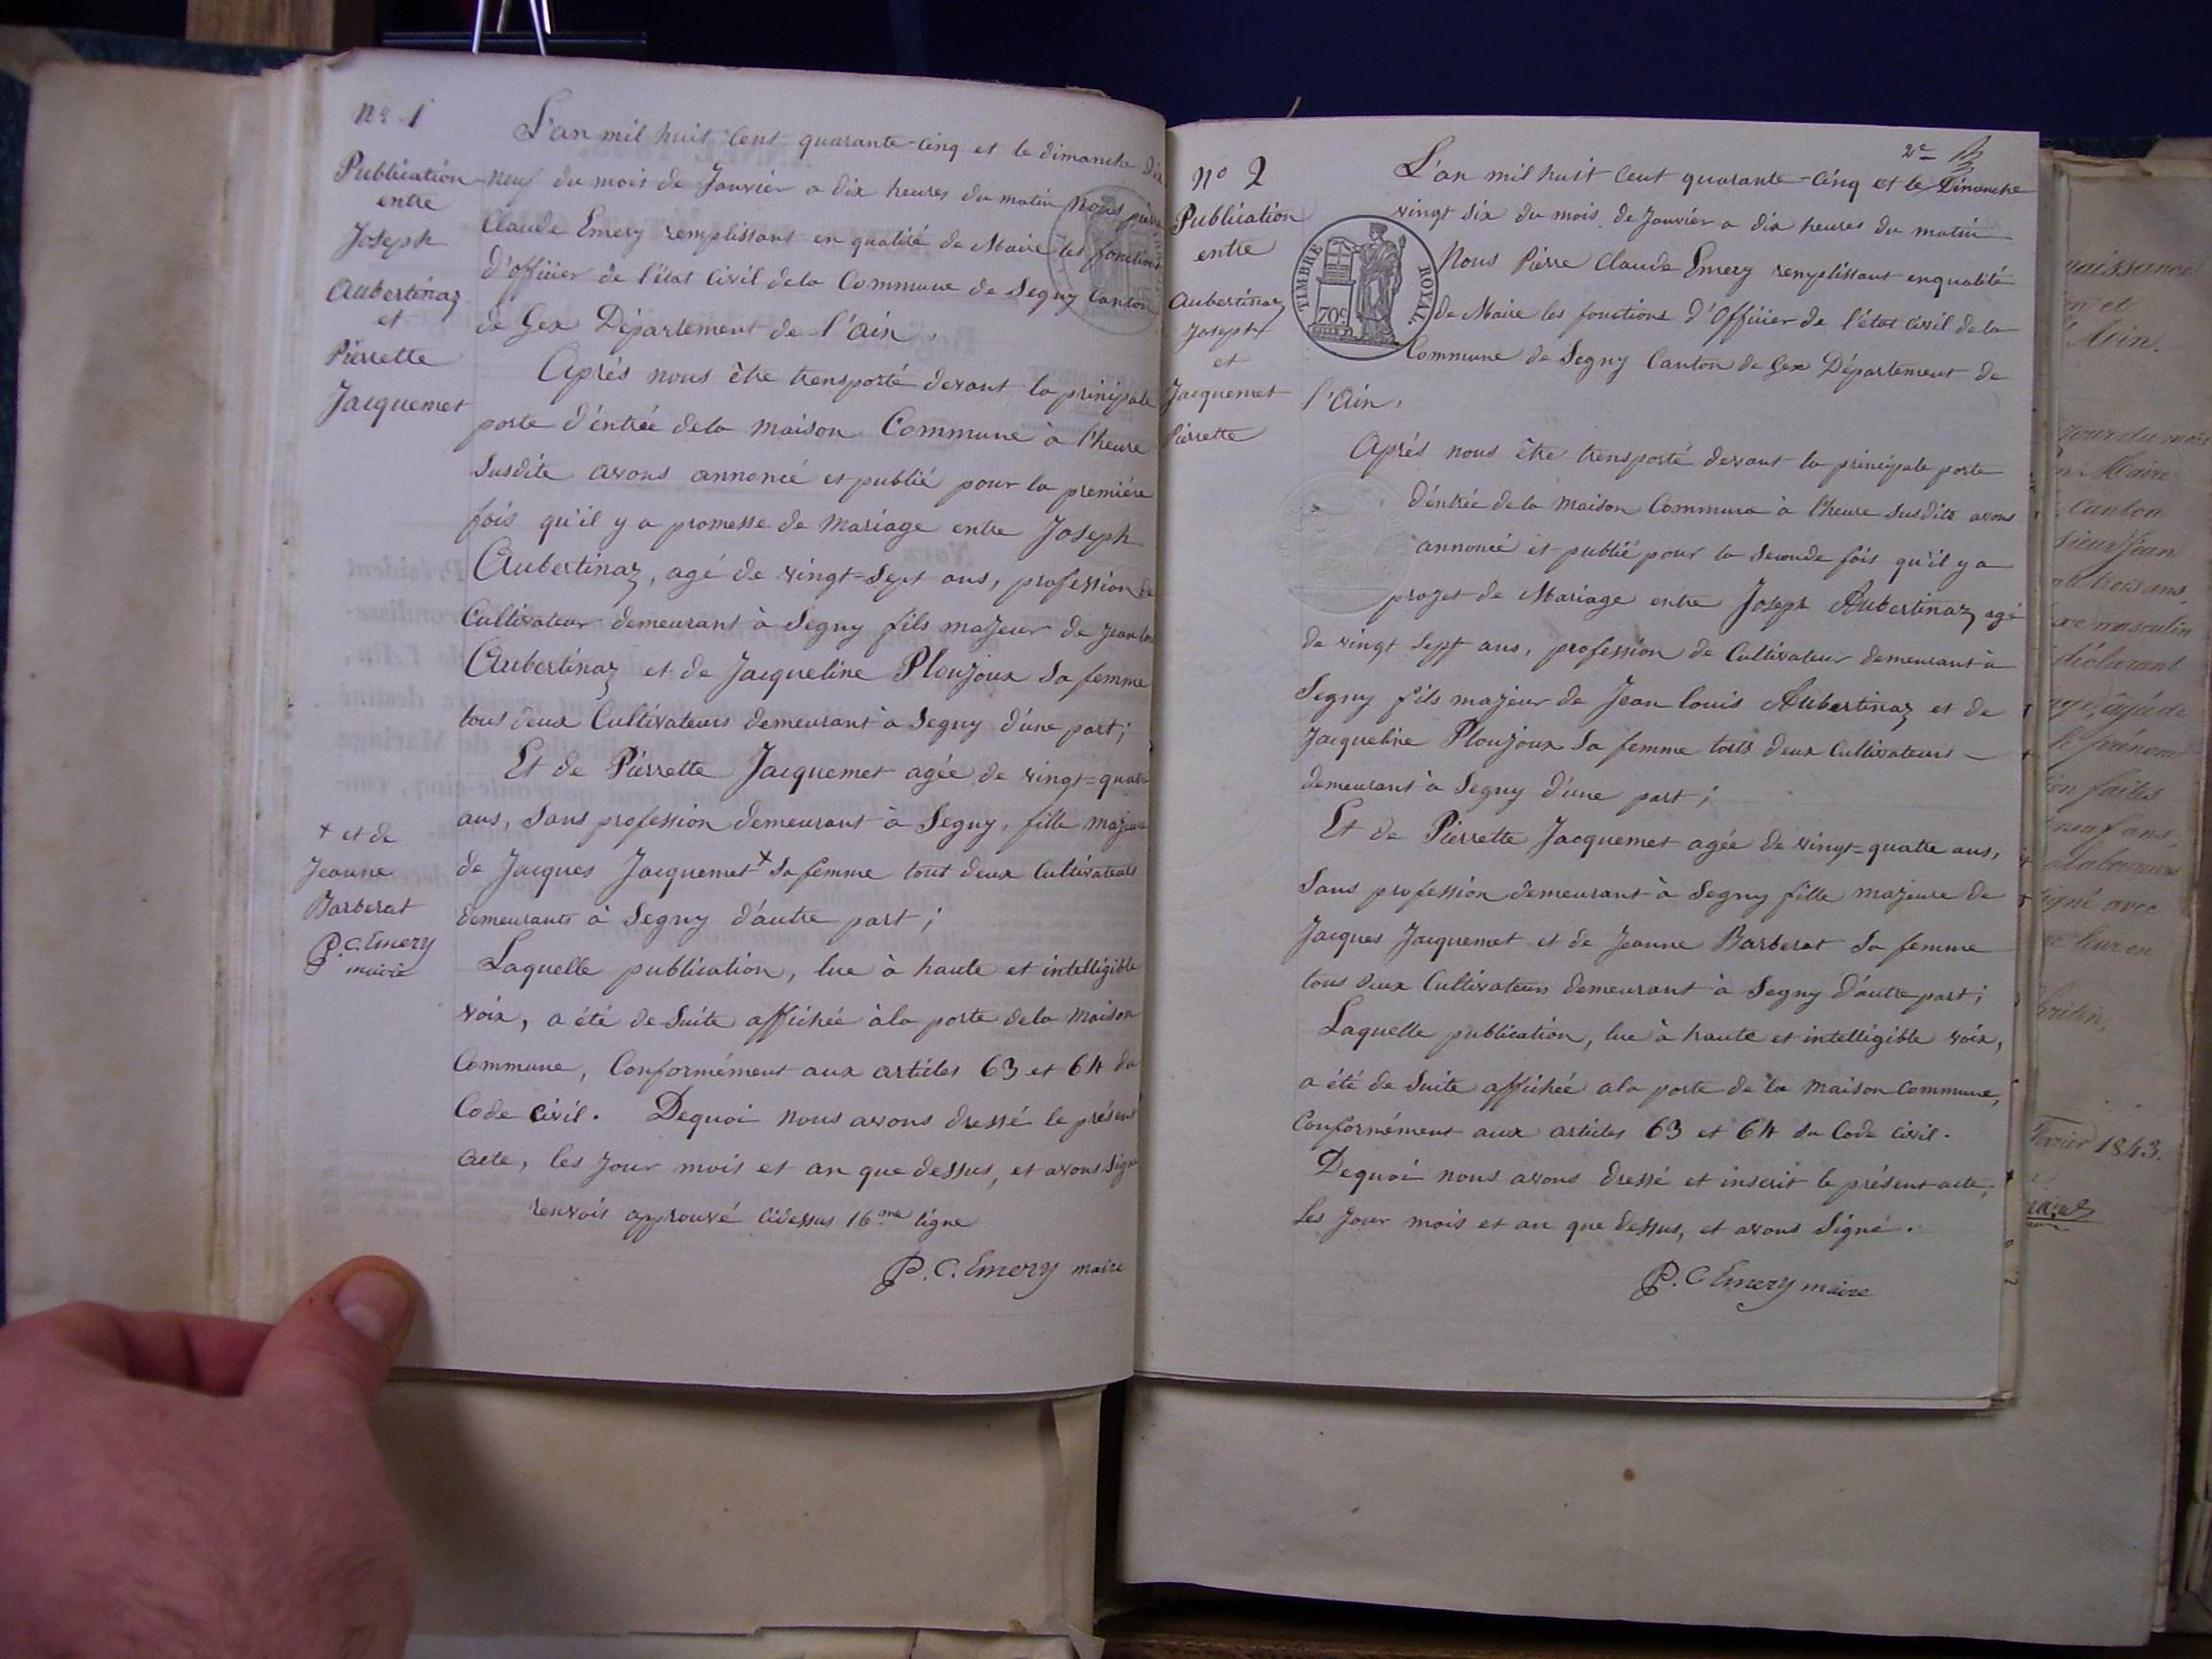 Nº 1
Publication
entre
Joseph
Aubertinaz
et
Pierrette
Jacquemet
L'an mil huit Cent quarante-Cinq et le dimanche Dix
neuf du mois de Janvier a dix heures du matin Nous pierre
Claude Emery remplissant en qualité de Maire les fonctions
d'officier de l'état Civil dela Commune de Segny Canton
de Gex Département de l'ain.
Aprés nous être transporté devant la principale
porte d'éntrée dela maison Commune à l'heure
Susdite avons annoncé et publié pour la premiére
fois qu'il y a promesse de Mariage entre Joseph
Aubertinaz, agé de vingt=Sept ans, profession de
Cultivateur demeurant à Segny fils majeur de Jean
Aubertinaz et de Jacqueline Ploujoux Sa femme
tous deux Cultivateurs demeurant à Segny d'une part;
Et de Pierrette Jacquemet agée de vingt=quatre
ans, Sans profession demeurant à Segny, fille majeure
de Jacques Jacquemet x Sa femme tout deux Cultivateurs
demeurants à Segny d'autre part;
x et de
Jeanne
Barberat
P.C. Emery
maire
Laquelle publication, lue à haute et intelligible
voix, a été de Suite affichée àla porte dela Maison
Commune, Conformément aux articles 63 et 64 du
Code Civil. Dequoi nous avons dressé le présent
acte, les Jour mois et an que dessus, et avons Signé
renvois approuvé cidessus 16me ligne
P.C. Emery maire
2e
No 2
Publication
entre
Aubertinaz
Joseph
et
Jacquemet
Pierrette
TIMBRE ROYAL
70c
L'an mil huit Cent quarante-Cinq et le Dimanche
vingt Six du mois de Janvier a dix heures du matin
Nous Pierre Claude Emery remplissant enqualité
de Maire les fonctions d'Officier de l'état Civil de la
Commune de Segny Canton de Gex Département de
l'Ain.
Aprés nous être transporté devant la principale porte
d'éntrée de la Maison Commune à l'heure Susdite avons
annoncé et publié pour la Seconde fois qu'il y a
projet de Mariage entre Joseph Aubertinaz agé
de vingt Sept ans, profession de Cultivateur demeurant à
Segny fils majeur de Jean louis Aubertinaz et de
Jacqueline Ploujoux Sa femme touts deux Cultivateurs
demeurant à Segny d'une part;
Et de Pierrette Jacquemet agée de vingt=quatre ans,
Sans profession demeurant à Segny fille majeure de
Jacques Jacquemet et de Jeanne Barberat Sa femme
tous deux Cultivateurs demeurant à Segny d'autre part;
Laquelle publication, lue à haute et intelligible voix,
a été de Suite affichée ala porte de la maison Commune,
Conformément aux articles 63 et 64 du Code Civil.
Dequoi nous avons dressé et inscrit le présent acte,
Les Jour mois et an que dessus, et avons Signé.
P.C Emery maire
naissance
et
Ain.
jour du mois
Maire
Canton
sieur Jean
trois ans
masculin
déclarant
âgé de
prénom
faites
neuf ans
laboureur
signé avec
leur en
février 1843.